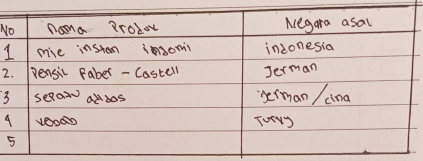 No nama Produk Negara asal
1 mie instan indomii indonesia
2. Pensil faber - Castell Jerman
3 sepatu adidas Jerman/cina
4
5